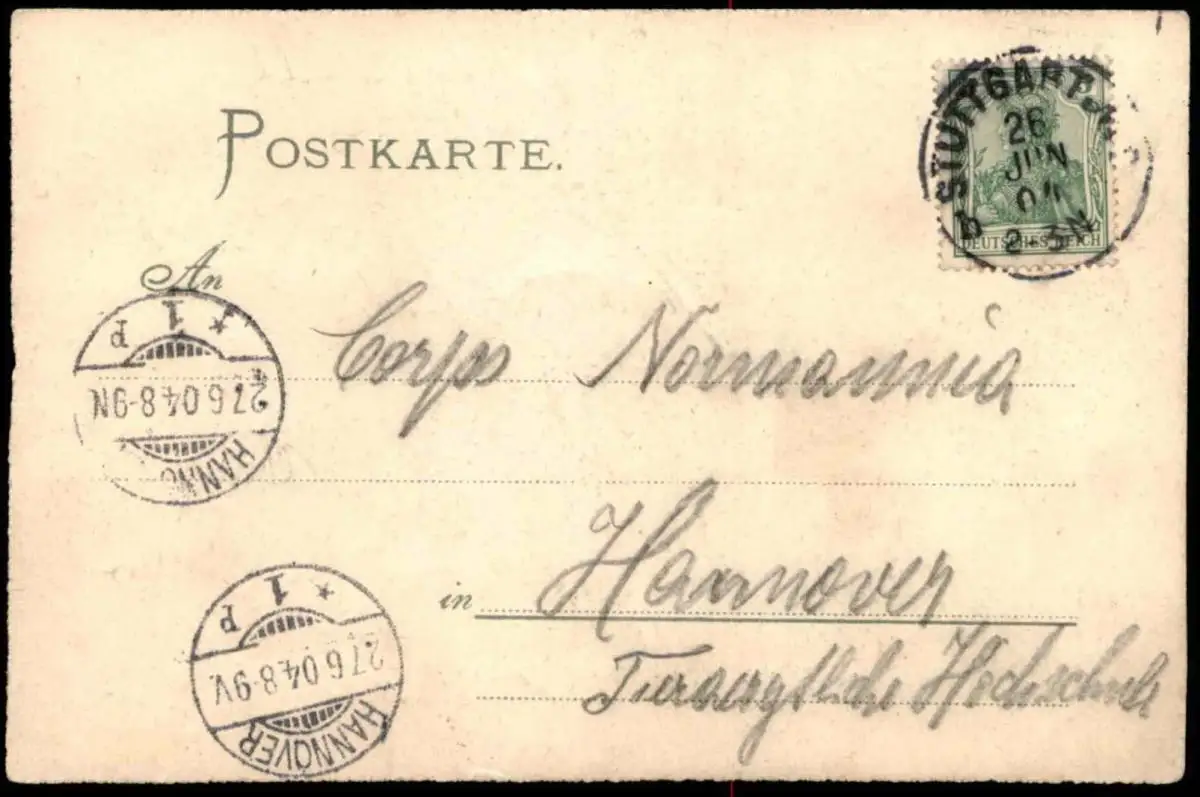 POSTKARTE.
STUTTGART
26
JUN
04
2-3N
b
DEUTSCHES REICH
An
Corps Normannia
in Hannover
Tierärztliche Hochschule
* 1 p
27.6.04.8-9N
HANNO
* 1 p
27.6.04.8-9V.
HANNOVER